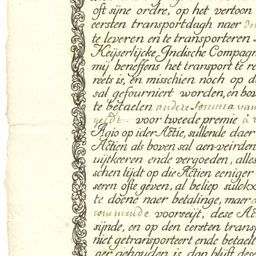 oft sijne ordre, op het vertoon
eersten transportdagh naer
te leveren en te transporteren
Keijserlijcke, Indische Compagn
mij beneffens het transport te re
reets is, en misschien noch op d
sal gefourniert worden, en bov
te betaelen andere somma van
geldt voor tweede premie à
Agio op ider Actie, sullende daer
Actien als boven sal aen-veirden
uijtkeeren ende vergoeden, alles
schen tijdt op die Actien eeniger
seren ofte geven, al beliep
te doene naer betalinge, maer
commende voorseijt, dese A
sijnde, en op den eersten transp
niet getransporteert ende betaelt
ger gehouden is, dan blijft dese